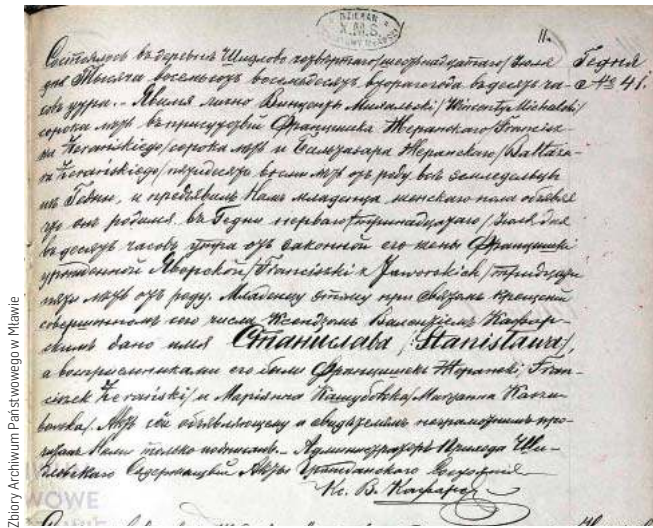 DZIEKAN
X.M.S.
11.
Состоялось въ деревнѣ Шидлово четвертаго/шестнадцатаго/Іюля
Гедня
дня Тысяча восемьсотъ восемьдесятъ втораго года въ десять ча-
№ 41.
совъ утра. – Явился лично Винцентъ Михальскі/Wincenty Michalski/
сорока лѣтъ въ присутствіи Францишка Жеранскаго/Francisz-
ka Żerańskiego/сорока лѣтъ и Бальтазара Жеранскаго/Baltaza-
ra Żerańskiego/пятидесяти восьми лѣтъ отъ роду всѣ земледѣльцы
изъ Гедни, и предъявилъ Намъ младенца женскаго пола объявляя
что онъ родился въ Гедни перваго/тринадцатаго/Іюля дня
въ десять часовъ утра отъ законной его жены Францишки
урожденной Яворской/Franciszki z Jaworskich/тридцати
пяти лѣтъ отъ роду. Младенцу этому при Святомъ Крещеніи
совершенномъ сего числа Ксендзомъ Валентіемъ Кафар-
скимъ дано имя Станислава /Stanisława/,
а воспріемниками его были Францишекъ Жеранскі, /Fran-
ciszek Żerański/ и Маріанна Кашубовска/Maryanna Kaszu-
bowska/. Актъ сей объявляющему и свидѣтелямъ неграмотнымъ про-
читанъ Нами только подписанъ. – Администраторъ Прихода Ши-
дловскаго Содержащій Акты Гражданскаго Состоянія
Кс. В. Кафарскі
Zbiory Archiwum Państwowego w Mławie
WOWE